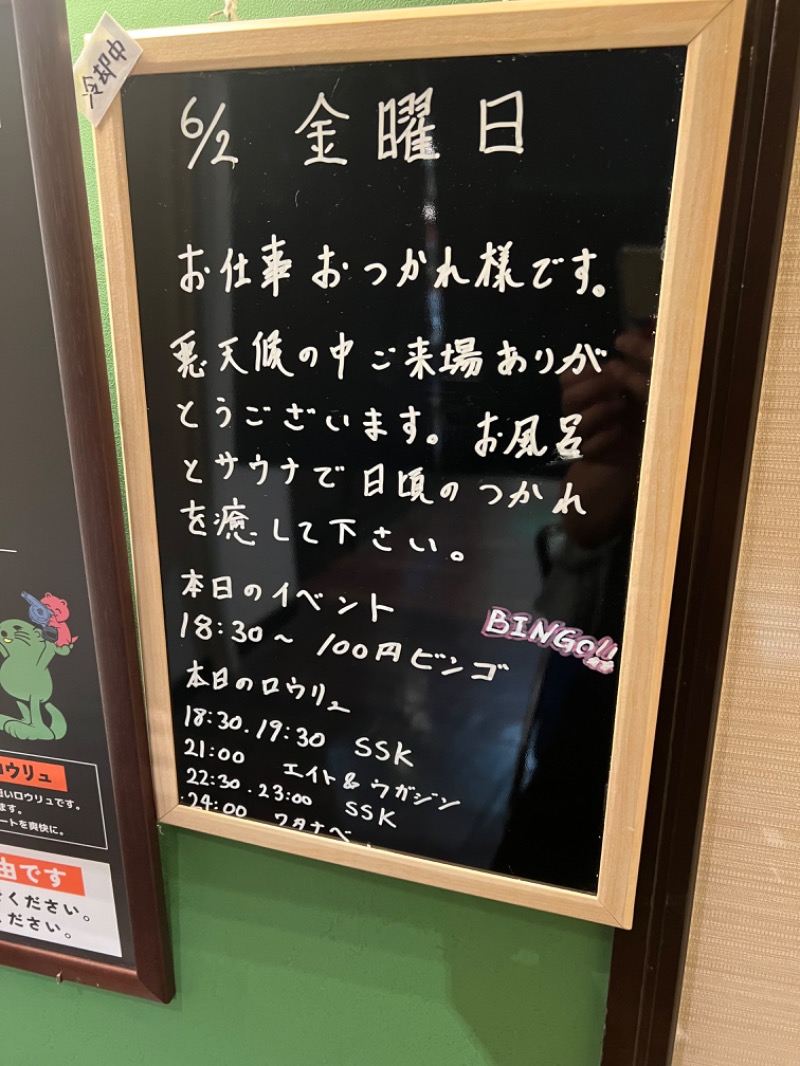 冷却中
6/2 金曜日
お仕事おつかれ様です。
悪天候の中ご来場ありが
とうございます。お風呂
とサウナで日頃のつかれ
を癒して下さい。
本日のイベント
18:30〜 100円ビンゴ
BINGO!!
本日のロウリュ
18:30.19:30 SSK
21:00 エイト&ウガジン
22:30.23:00 SSK
24:00 ワタナベ
ロウリュ
いロウリュです。
ます。
ートを爽快に。
由です
ください。
ください。